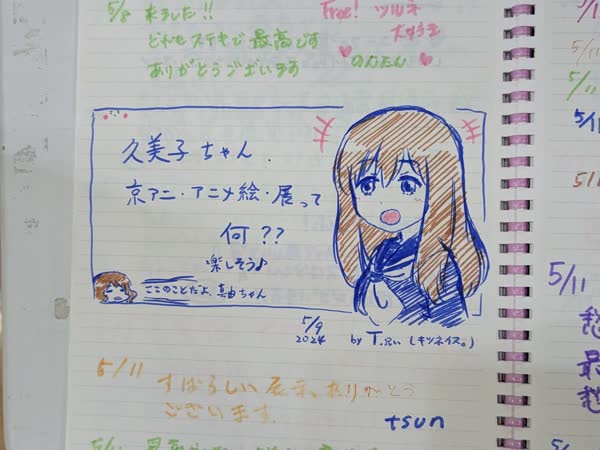 5/8 来ました!!
とてもステキで最高です
ありがとうございます
Free! ツルネ
大好き
♥のんたん♥
久美子ちゃん.
京アニ・アニメ絵・展って
何??
楽しそう♪
ここのことだよ、真由ちゃん
5/9
2024
by T.
(キツネイス。)
5/11 すばらしい展示、ありがとう
ございます.
tsun
5/11
5/11
最